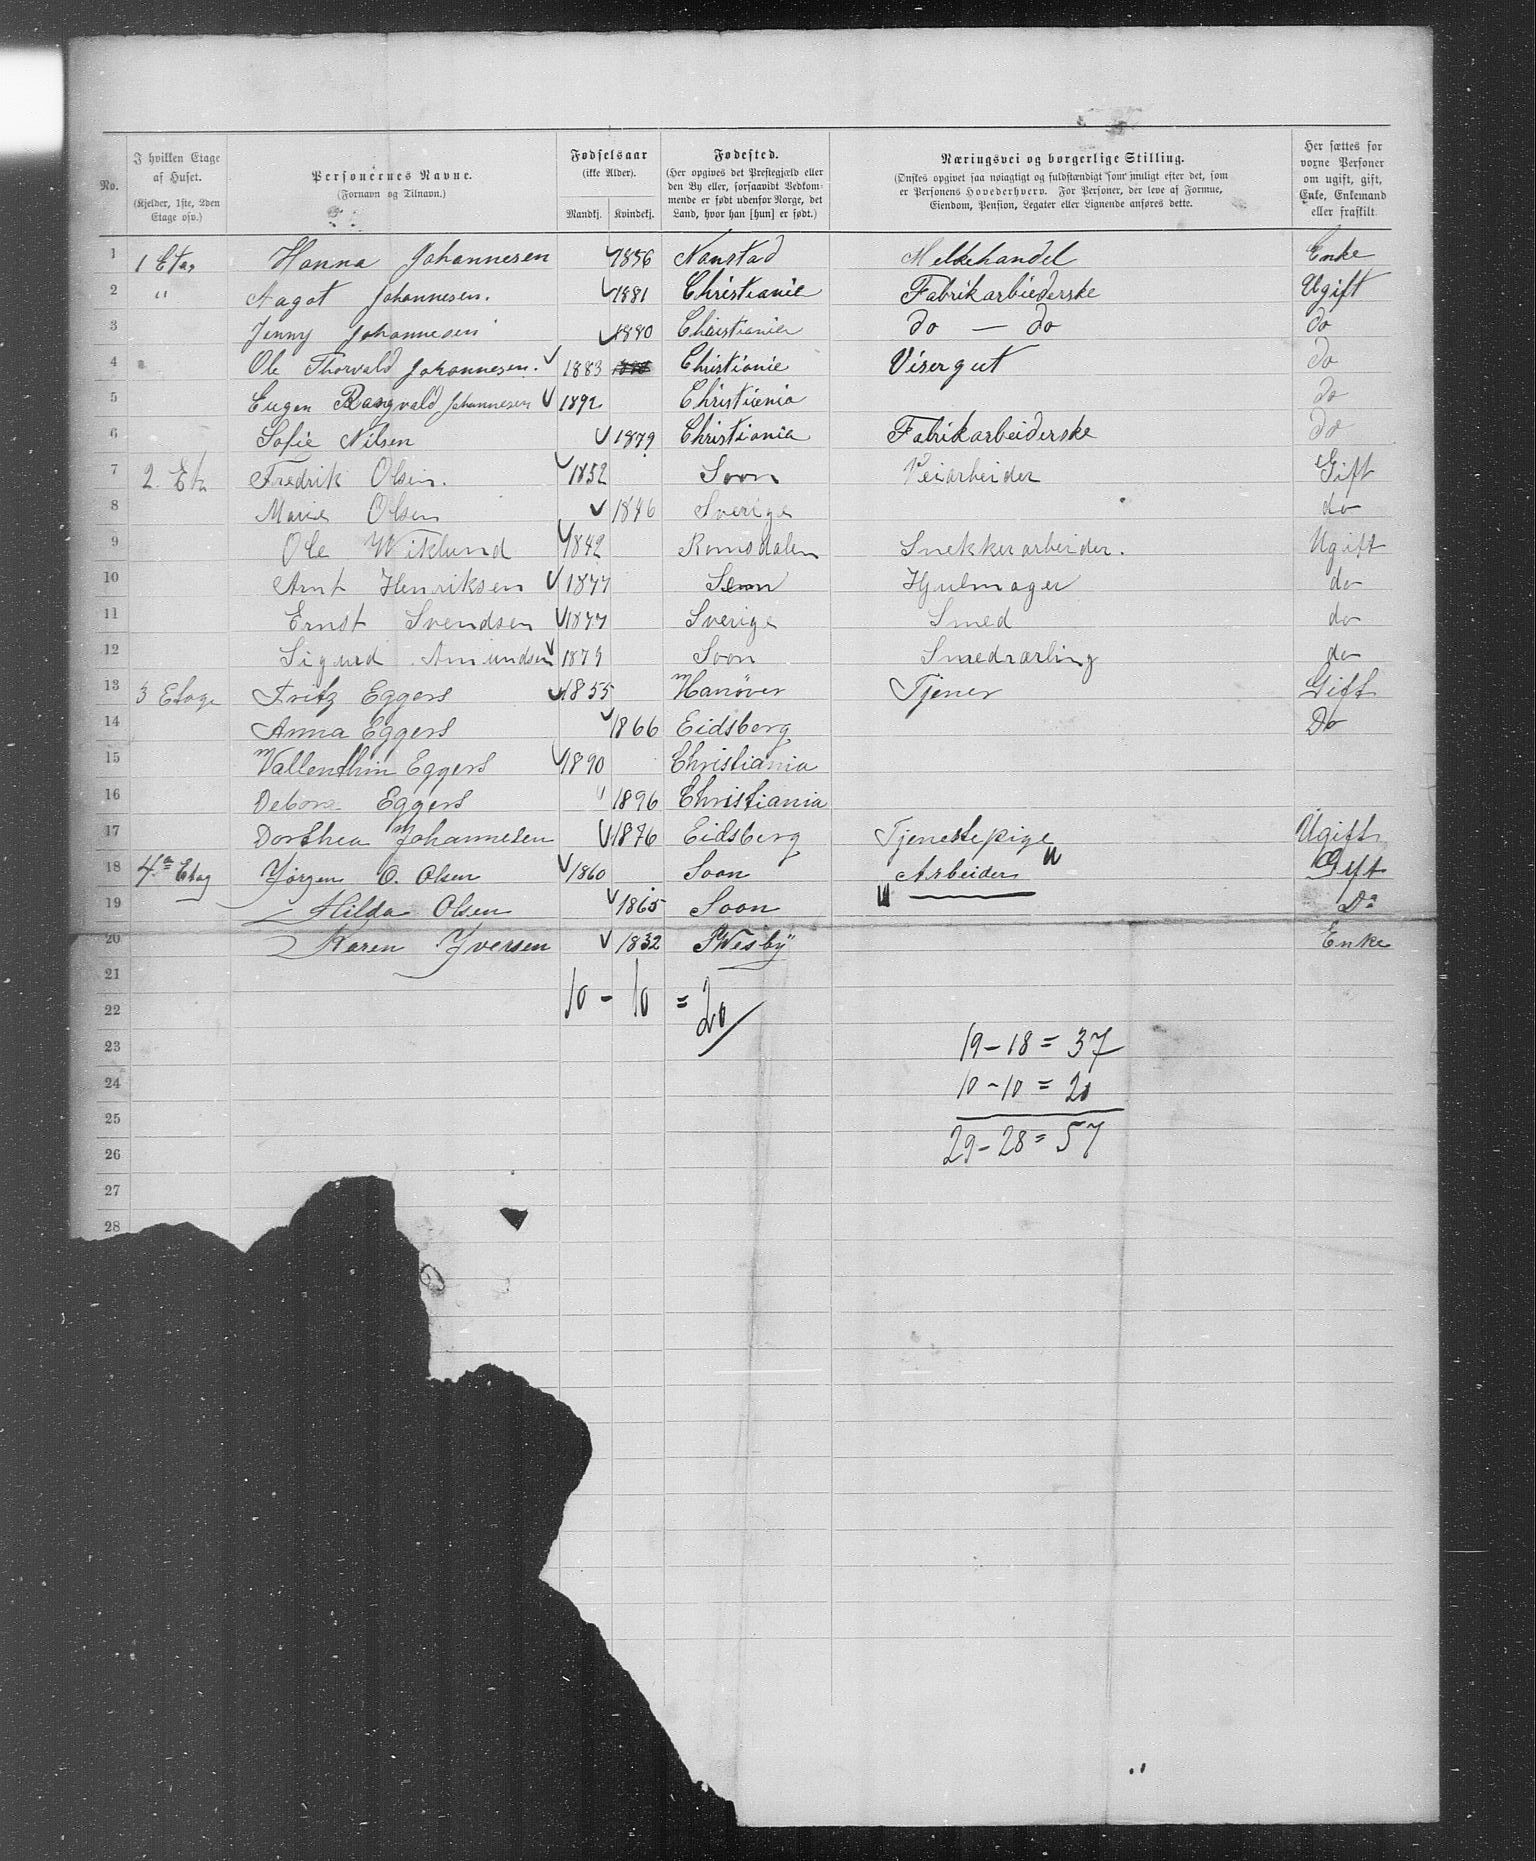 No.
I hvilken Etage af Huset.
(Kjelder, 1ste, 2den Etage osv.)
Personernes Navne.
(Fornavn og Tilnavn.)
Fødselsaar
(ikke Alder).
Mandkj. Kvindekj.
Fødested.
(Her opgives det Prestegjæld eller den By eller, forsaavidt Vedkommende er født udenfor Norge, det Land, hvor han [hun] er født.)
Næringsvei og borgerlige Stilling.
(Ønskes opgivet saa nøiagtigt og fuldstændigt som muligt efter det, som er Personens Hovederhverv. For Personer, der leve af Formue, Eiendom, Pension, Legater eller Lignende anføres dette.
Her sættes for voxne Personer om ugift, gift, Enke, Enkemand eller fraskilt
1 1 Etag Hanna Johannesen 1856 Nanstad Melkehandel Enke
2 " Aagot Johannesen. 1881 Christiania Fabrikarbiederske Ugift
3 Jenny Johannesen 1880 Christiania do — do do
4 Ole Thorvald Johannesen. 1883 Christianie Visergut do
5 Eugen Rangvald Johannesen 1892 Christiania do
6 Sofie Nilsen 1879 Christiania Fabrikarbeiderske do
7 2 Eta Fredrik Olsen. 1852 Soon Veiarbeider Gift
8 Marie Olsen 1846 Sverige do
9 Ole Wiklund 1842 Romsdalen Snekkerarbeider. Ugift
10 Arnt Henriksen 1877 Soon Hjulmager do
11 Ernst Svendsen 1877 Sverige Smed do
12 Sigurd Amundsen 1879 Soon Smedlærling do
13 3 Etage Fritz Eggers 1855 Hanøver Tjener Gift
14 Anna Eggers 1866 Eidsberg Do
15 Vallenthin Eggers 1890 Christiania
16 Debora Eggers 1896 Christiania
17 Dorthea Johannesen 1876 Eidsberg Tjenestepige Ugift
18 4a Etag Jörgen O. Olsen 1860 Soon Arbeider Gift
19 Hilda Olsen 1865 Soon " Do
20 Karen Yversen 1832 "Wesby" Enke
21
22 10 - 10 = 20
23 19 - 18 = 37
24 10 - 10 = 20
25
26 29 - 28 = 57
27
28